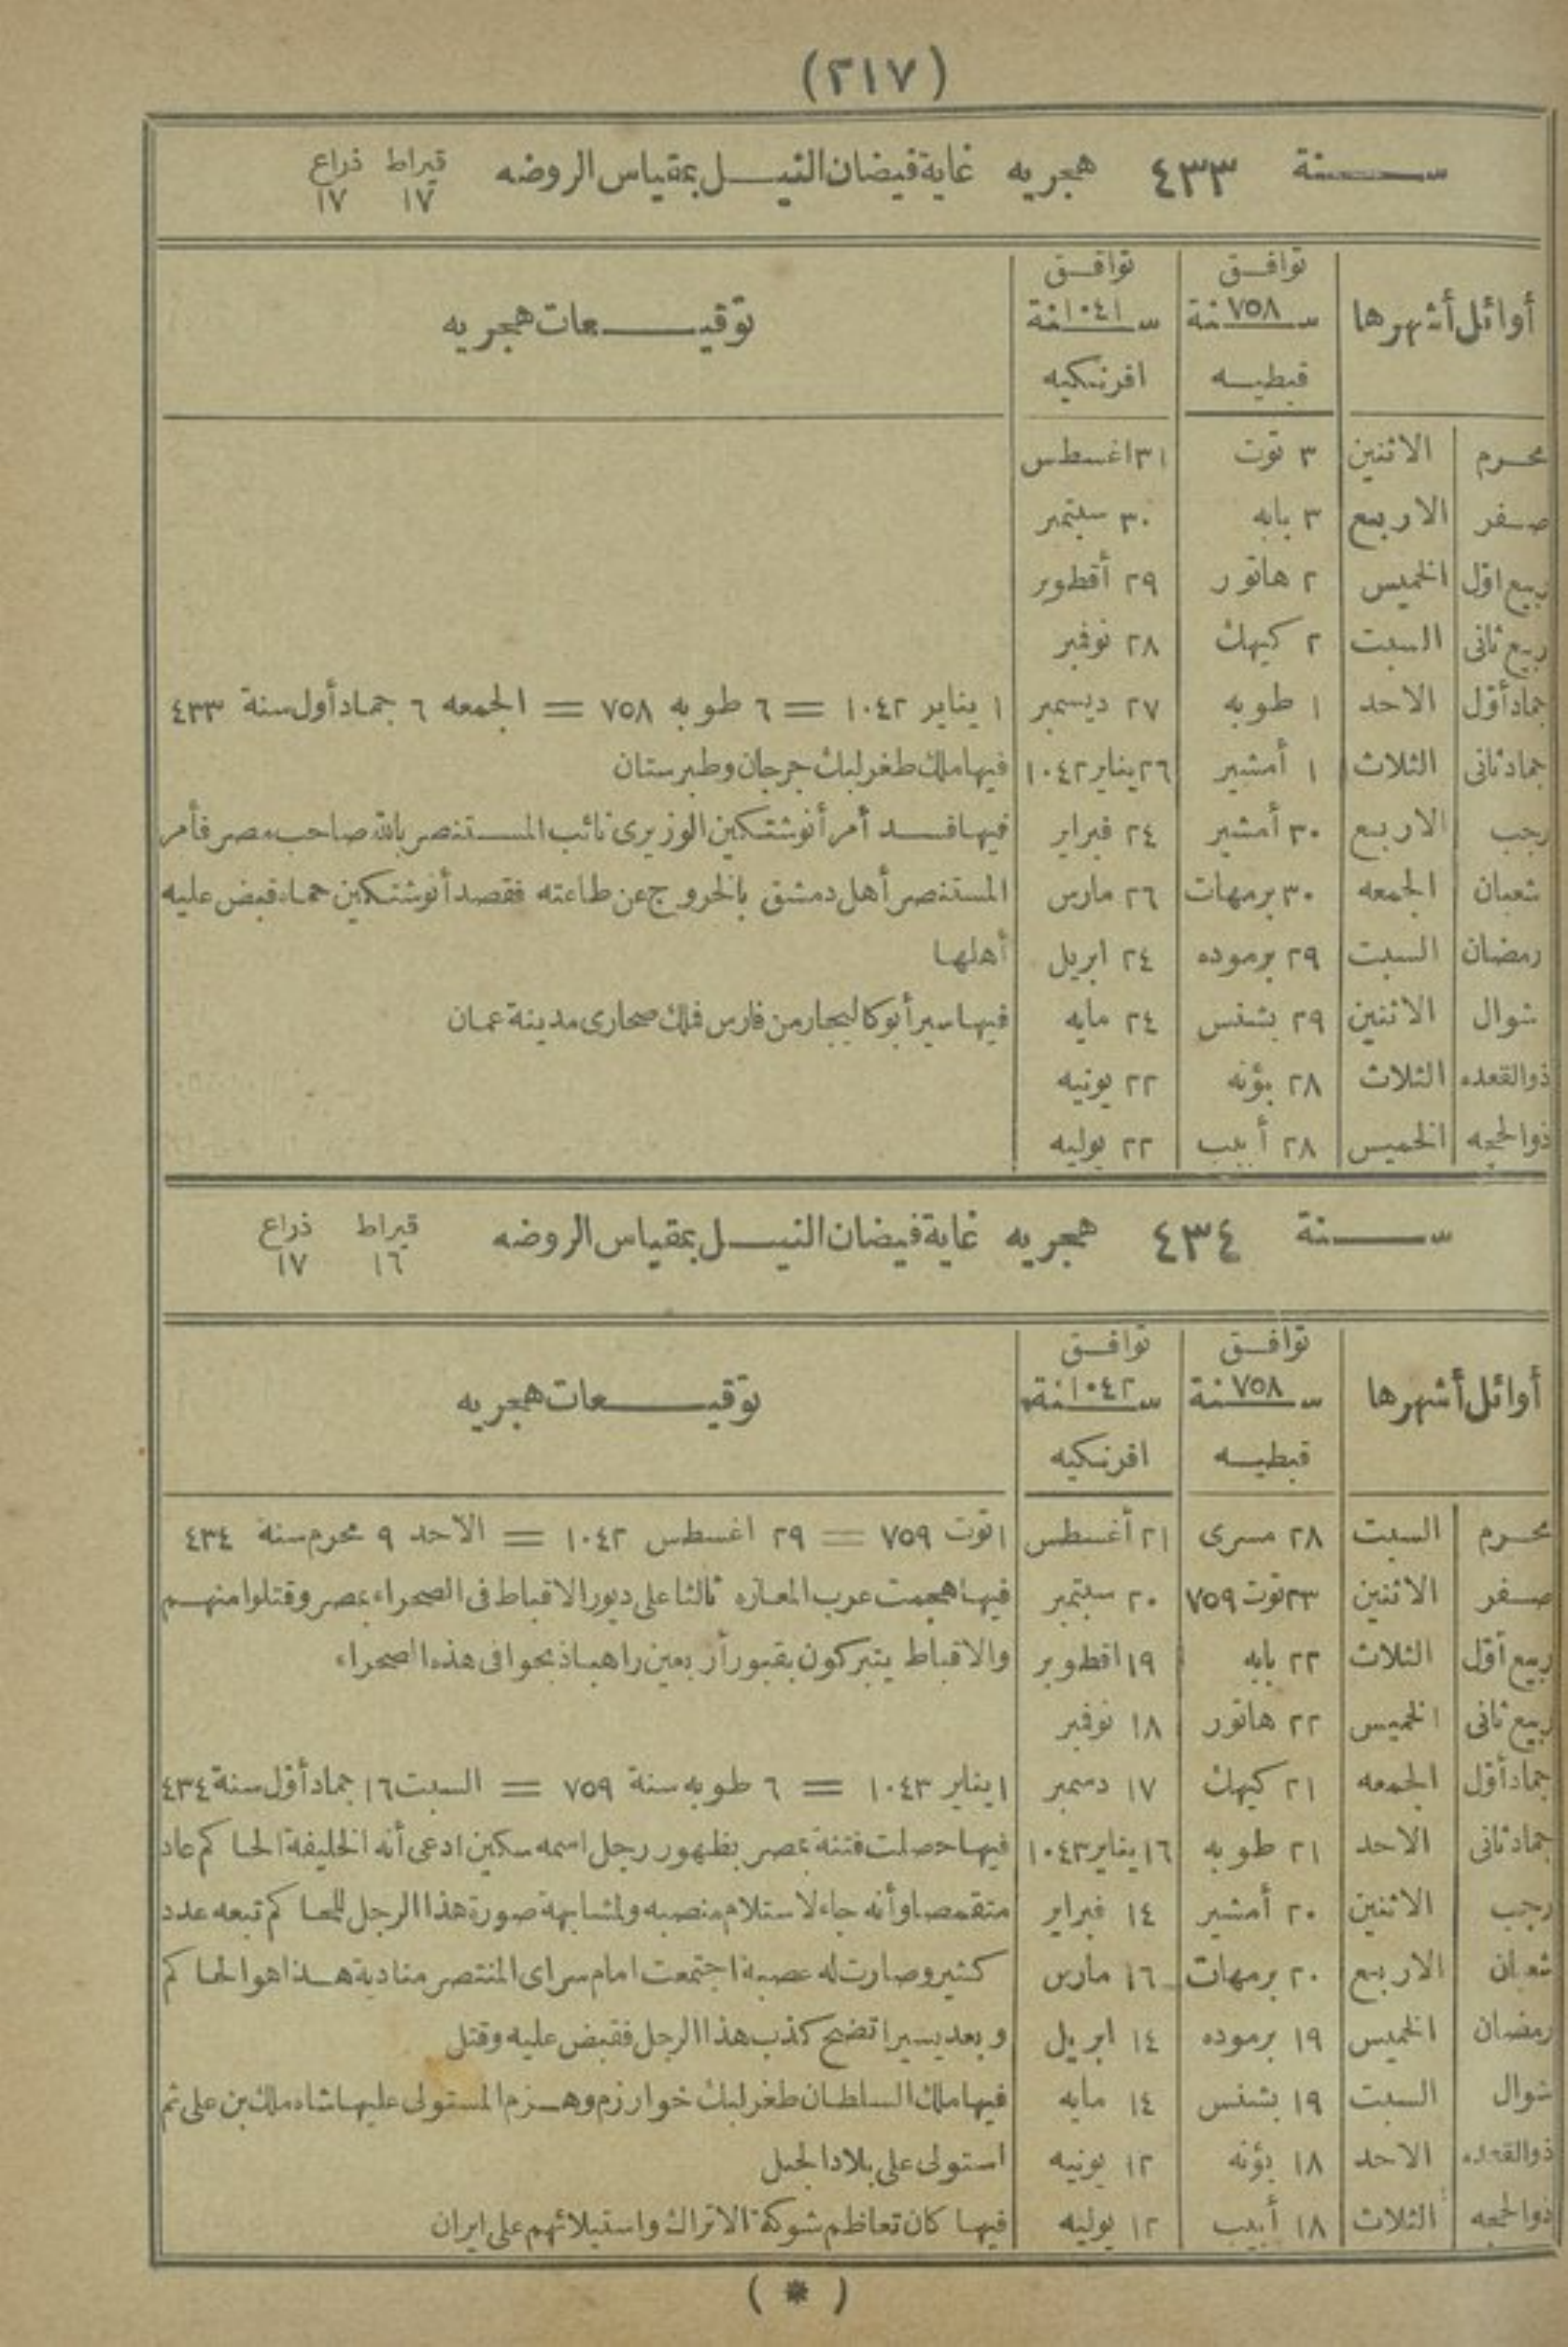 (٢١٧)
سنة ٤٣٣ هجريه غاية فيضان النيل بمقياس الروضه قيراط ١٧ ذراع ١٧
أوائل أشهرها توافق سنة ٧٥٨ قبطيه توافق سنة ١٠٤١ افرنكيه توقيعات هجريه
محرم الاثنين ٣ توت ٣١ اغسطس
صفر الاربع ٣ بابه ٣٠ سبتمبر
ربيع اول الخميس ٢ هاتور ٢٩ أقطوبر
ربيع ثانى السبت ٢ كيهك ٢٨ نوفمبر
جماد أول الاحد ١ طوبه ٢٧ ديسمبر ١ يناير ١٠٤٢ = ٦ طوبه ٧٥٨ = الجمعه ٦ جماد أول سنة ٤٣٣
جماد ثانى الثلاث ١ أمشير ٢٦ يناير ١٠٤٢ فيها ملك طغرلبك جرجان وطبرستان
رجب الاربع ٣٠ أمشير ٢٤ فبراير فيها فسد أمر أنوشتكين الوزيرى نائب المستنصر بالله صاحب مصر فأمر
شعبان الجمعه ٣٠ برمهات ٢٦ مارس المستنصر أهل دمشق بالخروج عن طاعته فقصد أنوشتكين حماه فبض عليه
رمضان السبت ٢٩ برموده ٢٤ ابريل أهلها
شوال الاثنين ٢٩ بشنس ٢٤ مايه فيها سير أبو كاليجار من فارس فملك صحارى مدينة عمان
ذوالقعده الثلاث ٢٨ بؤنه ٢٢ يونيه
ذوالحجه الخميس ٢٨ أبيب ٢٢ يوليه
سنة ٤٣٤ هجريه غاية فيضان النيل بمقياس الروضه قيراط ١٦ ذراع ١٧
أوائل أشهرها توافق سنة ٧٥٨ قبطيه توافق سنة ١٠٤٢ افرنكيه توقيعات هجريه
محرم السبت ٢٨ مسرى ٢١ أغسطس ١ توت ٧٥٩ = ٢٩ اغسطس ١٠٤٢ = الاحد ٩ محرم سنة ٤٣٤
صفر الاثنين ٢٣ توت ٧٥٩ ٢٠ سبتمبر فيها هجمت عرب المغازه ثالثا على ديور الاقباط فى الصحراء بمصر وقتلوا منهم
ربيع أول الثلاث ٢٢ بابه ١٩ اقطوبر والاقباط يتبركون بقبور أربعين راهبا ذبحوا فى هذه الصحراء
ربيع ثانى الخميس ٢٢ هاتور ١٨ نوفمبر
جماد أول الجمعه ٢١ كيهك ١٧ دسمبر ١ يناير ١٠٤٣ = ٦ طوبه سنة ٧٥٩ = السبت ١٦ جماد أول سنة ٤٣٤
جماد ثانى الاحد ٢١ طوبه ١٦ يناير ١٠٤٣ فيها حصلت فتنة بمصر بظهور رجل اسمه سكين ادعى أنه الخليفة الحاكم عاد
رجب الاثنين ٢٠ أمشير ١٤ فبراير متقمصا وأنه جاء لاستلام منصبه ولمشابهة صورة هذا الرجل للحاكم تبعه عدد
شعبان الاربع ٢٠ برمهات ١٦ مارس كثير وصارت له عصبة اجتمعت امام سراى المنتصر منادية هذا هو الحاكم
رمضان الخميس ١٩ برموده ١٤ ابريل وبعد يسير اتضح كذب هذا الرجل فقبض عليه وقتل
شوال السبت ١٩ بشنس ١٤ مايه فيها ملك السلطان طغرلبك خوارزم وهزم المستولى عليها شاه ملك بن على ثم
ذوالقعده الاحد ١٨ بؤنه ١٢ يونيه استولى على بلاد الجبل
ذوالحجه الثلاث ١٨ أبيب ١٢ يوليه فيها كان تعاظم شوكة الاتراك واستيلائهم على ايران
(*)